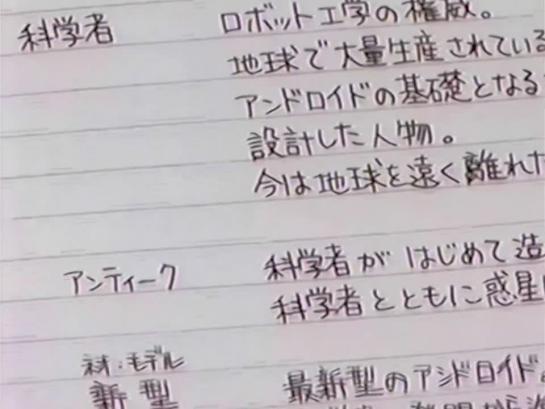 科学者 ロボット工学の権威。
地球で大量生産されている
アンドロイドの基礎となる
設計した人物。
今は地球を遠く離れた
アンティーク 科学者がはじめて造
科学者とともに惑星
モデル
新型 最新型のアンドロイド。